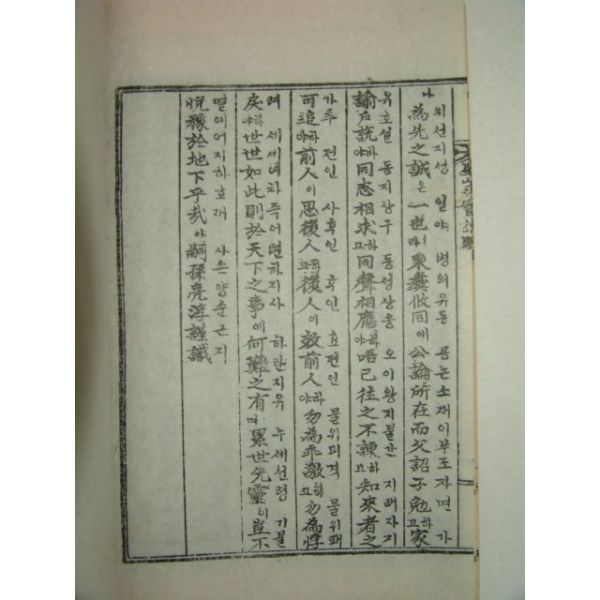 위선지성 일야 병의유동 공논소재이부조자면 가
나 爲先之誠은 一也라 秉彛攸同에 公論所在而父詔子勉하고 家
유호설 동지상구 동성상응 오이왕지불간 지래자지
諭戶說하야 同志相求하고 同聲相應하야 悟已往之不諫하고 知來者之
가추 전인 사후인 후인 효전인 물위괴격 물위패
可追하야 前人이 思後人하고 後人이 效前人하야 勿爲乖激하고 勿爲悖
려 세세여차즉어텬하지사 하란지유 누세선령 기불
戾하야 世世如此則於天下之事에 何難之有며 累世先靈이 豈不
열예어지하호재 사손양순근지
悅豫於地下乎哉아 嗣孫亮淳謹識